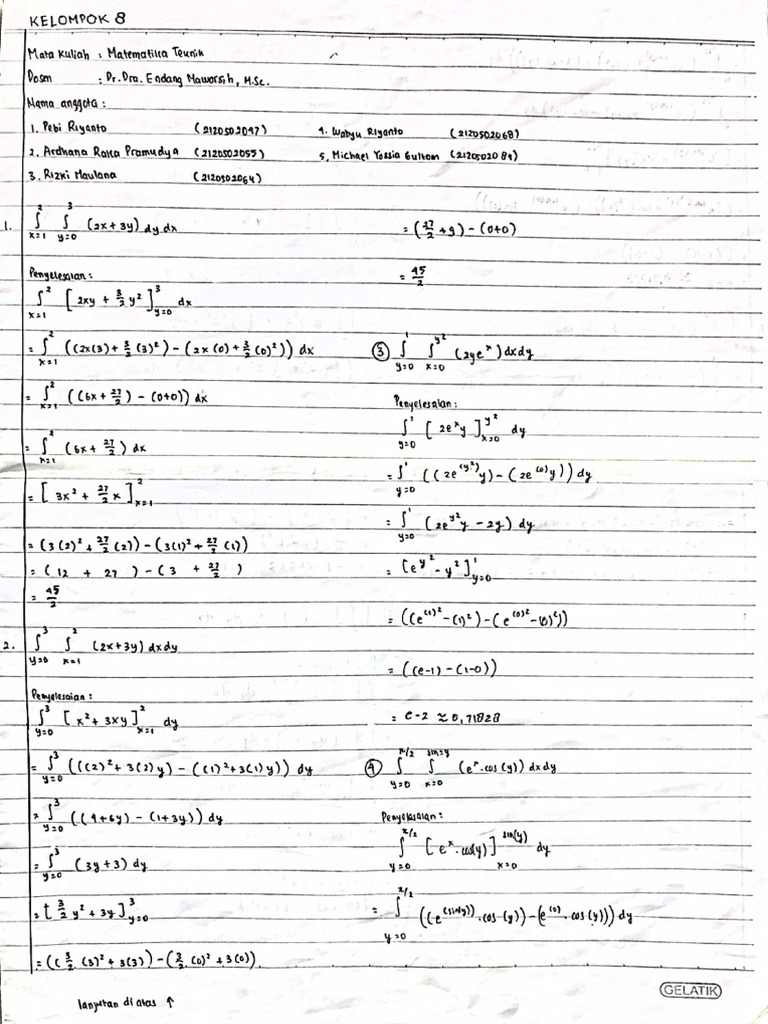 KELOMPOK 8
Mata Kuliah : Matematika Teknik
Dosen : Dr. Dra. Endang Mawarsih, M.Sc.
Nama anggota :
1. Pebi Riyanto (2120502047) 4. Wahyu Riyanto (2120502068)
2. Ardhana Raka Pramudya (2120502055) 5. Michael Yossia Gultom (2120502084)
3. Rizki Maulana (2120502064)
1. ∫_{x=1}^{2} ∫_{y=0}^{3} (2x + 3y) dy dx
Penyelesaian :
∫_{x=1}^{2} [2xy + 3/2 y²]_{y=0}^{3} dx
= ∫_{x=1}^{2} ((2x(3) + 3/2 (3)²) - (2x(0) + 3/2 (0)²)) dx
= ∫_{x=1}^{2} ((6x + 27/2) - (0+0)) dx
= ∫_{x=1}^{2} (6x + 27/2) dx
= [3x² + 27/2 x]_{x=1}^{2}
= (3(2)² + 27/2 (2)) - (3(1)² + 27/2 (1))
= (12 + 27) - (3 + 27/2)
= 45/2
2. ∫_{y=0}^{3} ∫_{x=1}^{2} (2x + 3y) dx dy
Penyelesaian :
∫_{y=0}^{3} [x² + 3xy]_{x=1}^{2} dy
= ∫_{y=0}^{3} (((2)² + 3(2)y) - ((1)² + 3(1)y)) dy
= ∫_{y=0}^{3} ((4+6y) - (1+3y)) dy
= ∫_{y=0}^{3} (3y+3) dy
= [3/2 y² + 3y]_{y=0}^{3}
= ((3/2 (3)² + 3(3)) - (3/2 (0)² + 3(0))
lanjutan di atas ↑
= (27/2 + 9) - (0+0)
= 45/2
③ ∫_{y=0}^{1} ∫_{x=0}^{y²} (2ye^x) dx dy
Penyelesaian :
∫_{y=0}^{1} [2e^x y]_{x=0}^{y²} dy
= ∫_{y=0}^{1} ((2e^{(y²)} y) - (2e^{(0)} y)) dy
= ∫_{y=0}^{1} (2e^{y²} y - 2y) dy
= [e^{y²} - y²]_{y=0}^{1}
= ((e^{(1)²} - (1)²) - (e^{(0)²} - (0)²))
= ((e-1) - (1-0))
= e-2 ≈ 0,71828
④ ∫_{y=0}^{π/2} ∫_{x=0}^{sin y} (e^x . cos(y)) dx dy
Penyelesaian :
∫_{y=0}^{π/2} [e^x . cos(y)]_{x=0}^{sin(y)} dy
= ∫_{y=0}^{π/2} ((e^{(sin(y))} . cos (y)) - (e^{(0)} . cos(y))) dy
GELATIK